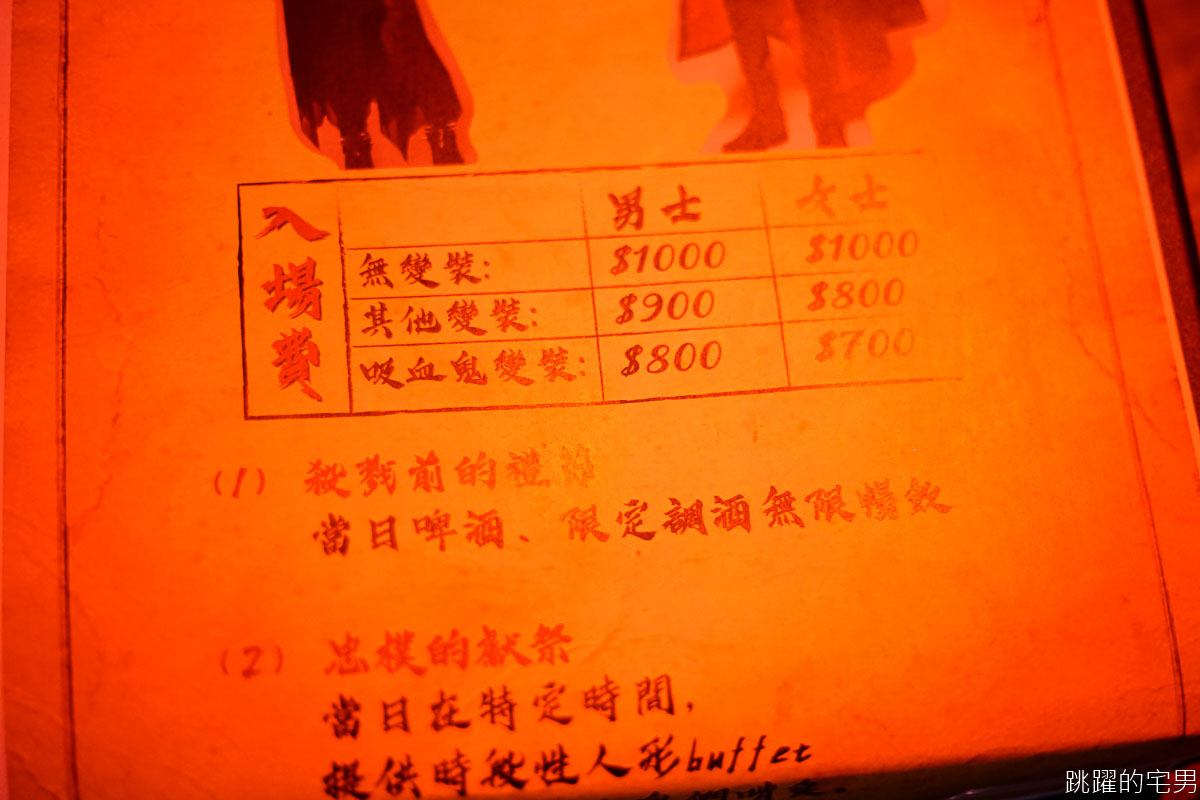 入場費
男士 女士
無變裝: $1000 $1000
其他變裝: $900 $800
吸血鬼變裝: $800 $700
(1) 殺戮前的禮
當日啤酒、限定調酒無限暢飲
(2) 忠樸的獻祭
當日在特定時間,
提供時般性人形buffet
跳躍的宅男